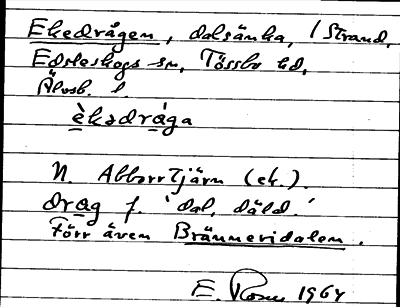 Ekedrågen, dalsänka, / Strand,
Edsleskogs sn, Tössbo hd,
Älvsb. l.
èkədrága
N. Abborrtjärn (ek.).
drag f. 'dal, däld.'
Förr även Bränneridalen.
E. 1964